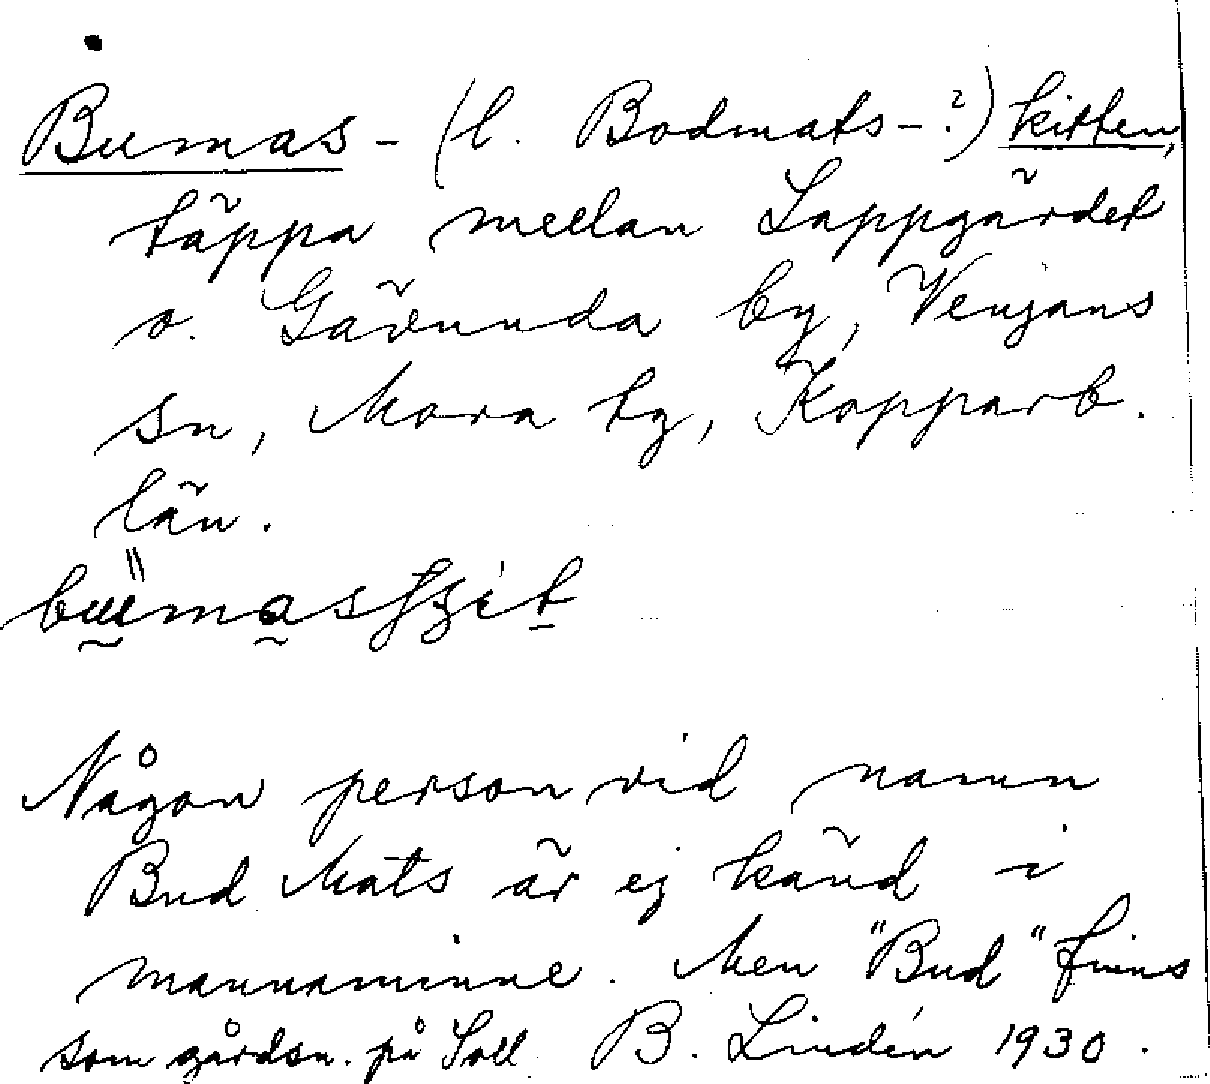 Bumas - (l. Bodmats-?) kitten,
täppa mellan Lappgärdet
o. Gävunda by, Venjans
sn, Mora tg, Kopparb.
län.
Någon person vid namn
Bud Mats är ej känd i
mannaminne. Men "Bud" finns
som gårdsn. på Soll. B. Lindén 1930.